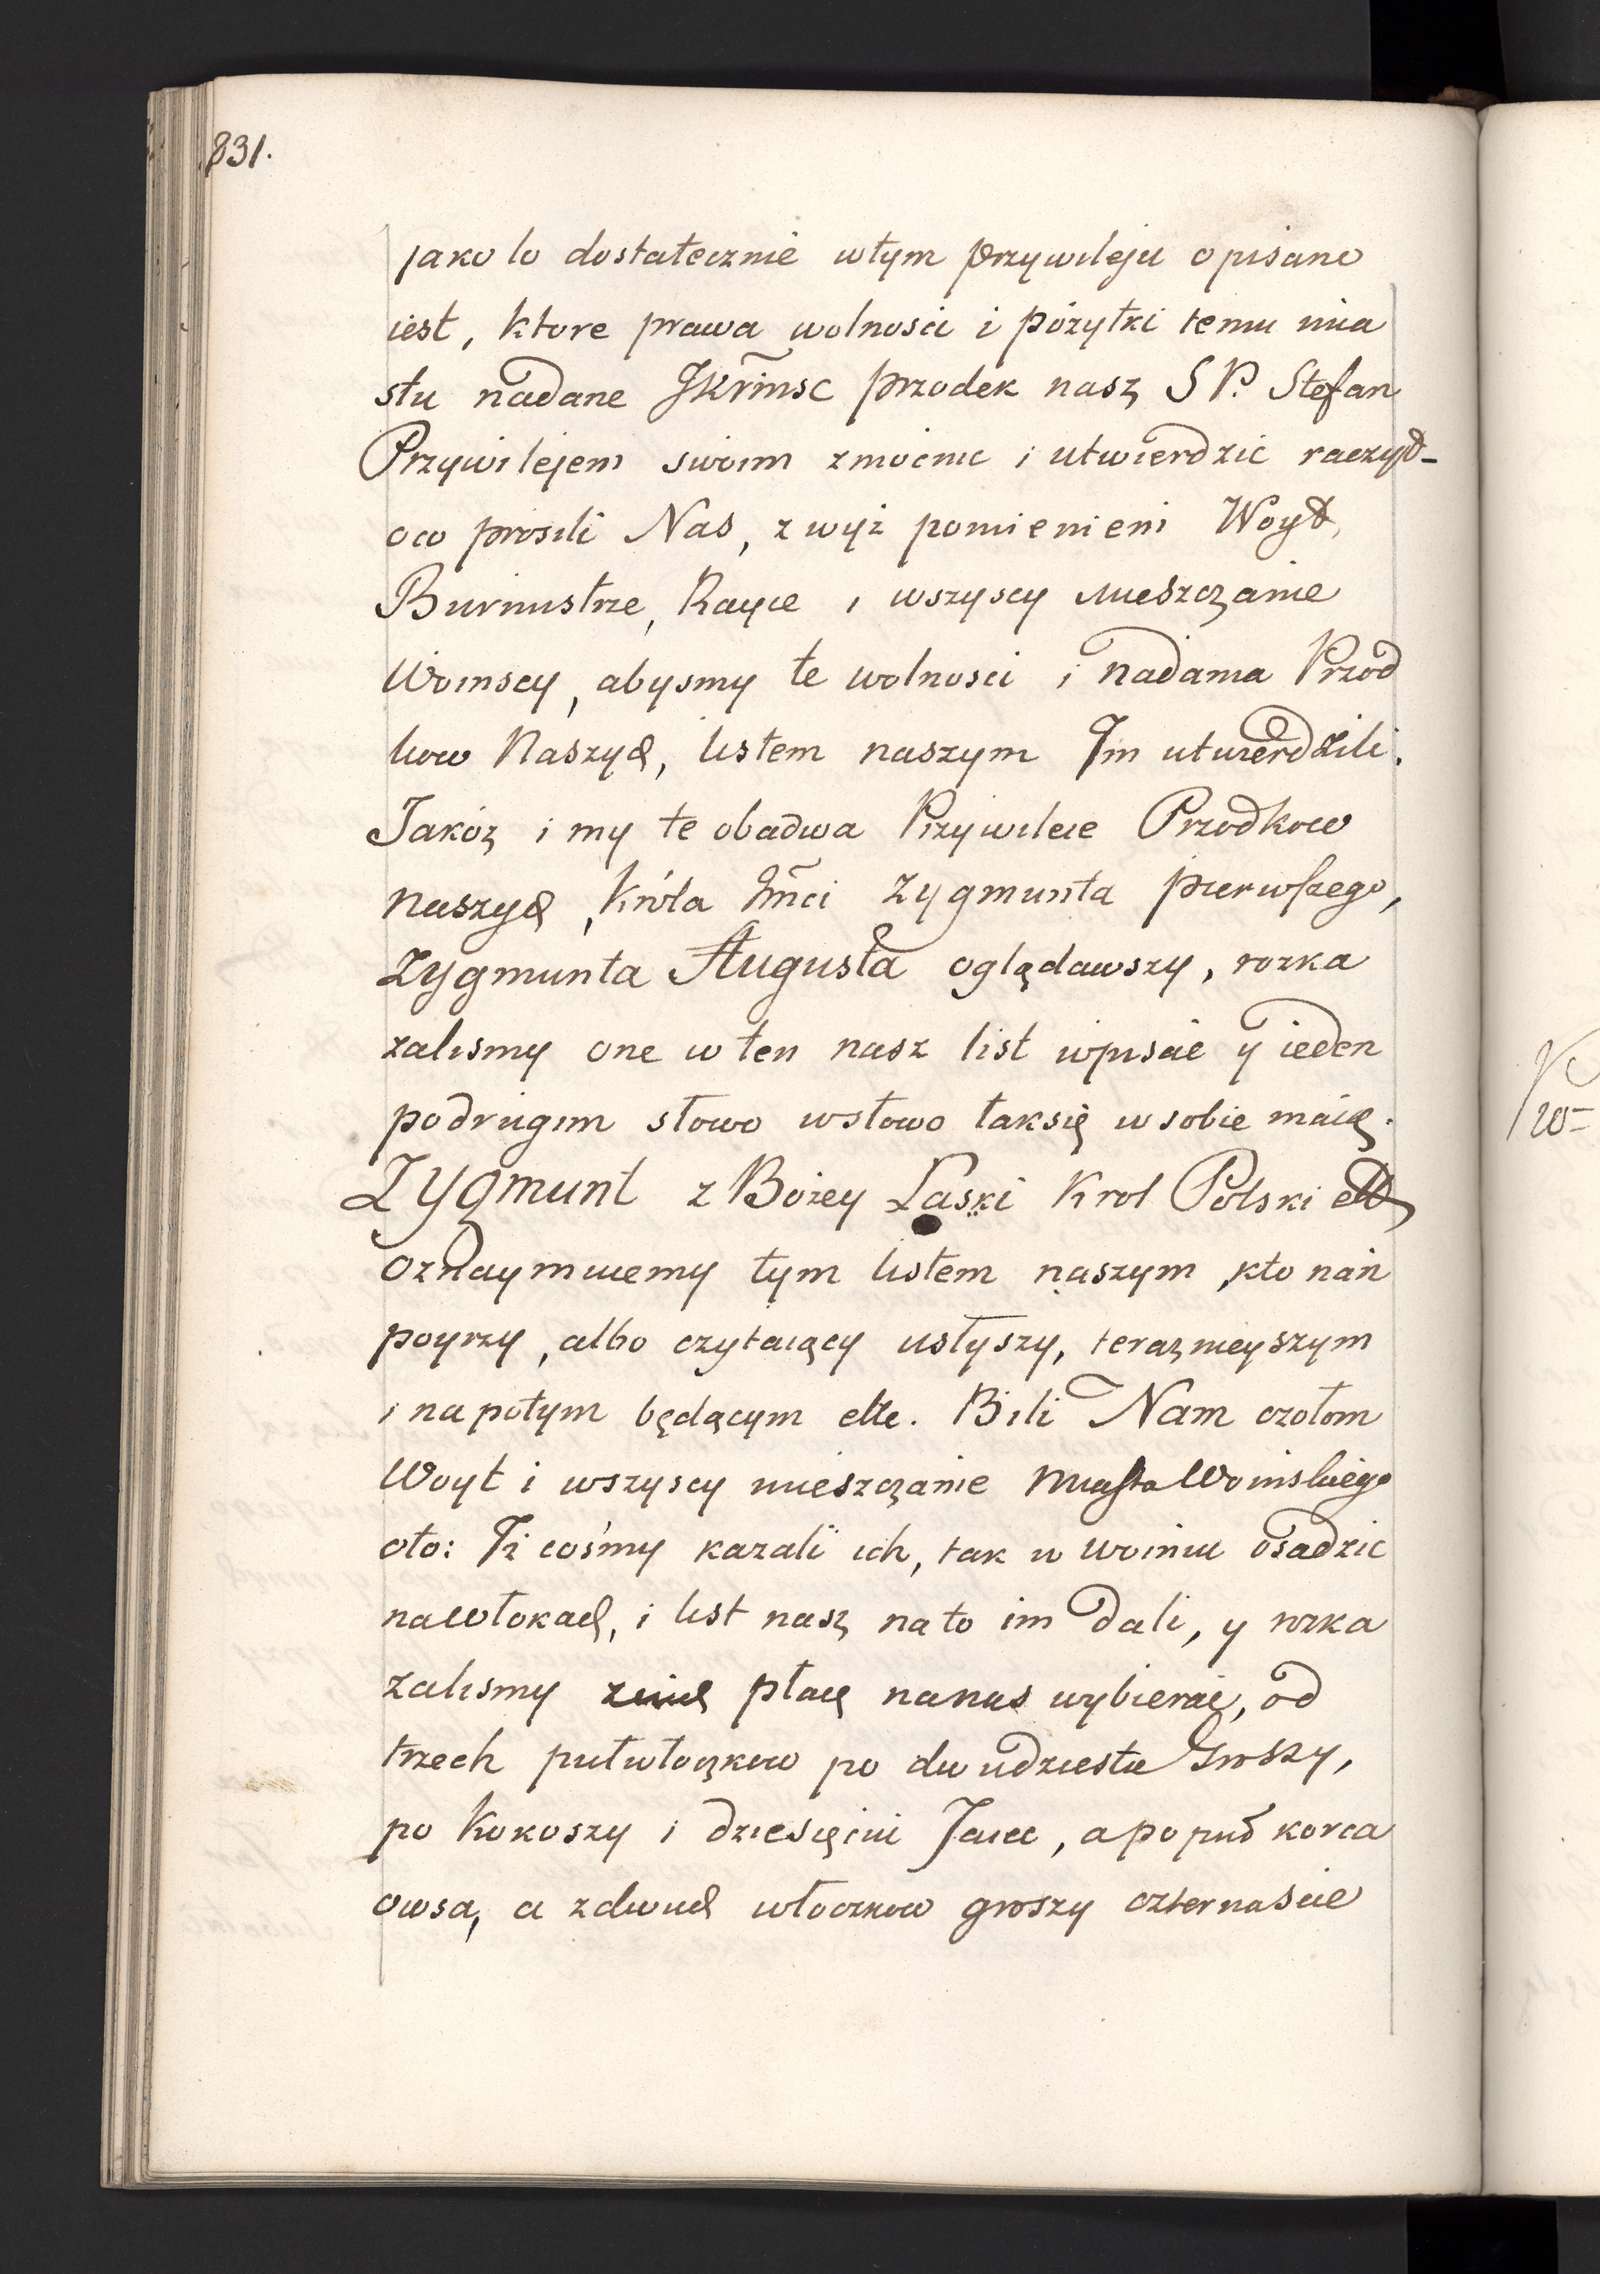 831.
jako to dostatecznie wtym przywileju opisano
iest, ktore prawa wolnosci i pożytki temu mia
stu nadane JKrmsc przodek nasz SP. Stefan
Przywilejem swoim zmocnic i utwierdzic raczył_
oco prosili Nas, zwyż pomienieni Woyt,
Burmistrze, Rayce i wszyscy mieszczanie
Woinscy, abysmy te wolnosci i nadania Przod
kow Naszych, listem naszym Im utwierdzili.
Jakoż i my te obadwa Przywileie Przodkow
naszych, Króla Jmci Zygmunta pierwszego,
Zygmunta Augusta oglądawszy, rozka
zalismy one w ten nasz list wpisac y ieden
podrugim słowo wsłowo taksię w sobie maią.
Zygmunt z Bożey Łaski Krol Polski ettc
Oznaymuiemy tym listem naszym, kto nań
poyrzy, albo czytaiący usłyszy, teraznieyszym
i napotym będącym ette. Bili Nam czołom
Woyt i wszyscy mieszczanie Miasta Woinskiego
oto: Iż cośmy kazali ich, tak w Woiniu osadzic
nawłokach, i list nasz nato im dali, y rozka
zalismy znich płacę nanas wybierac, od
trzech pułwłoczkow po dwudziestu Groszy,
po Kokoszy i dziesięciu Jaiec, apopuł korca
owsa, a zdwuch włoczkow groszy czternascie